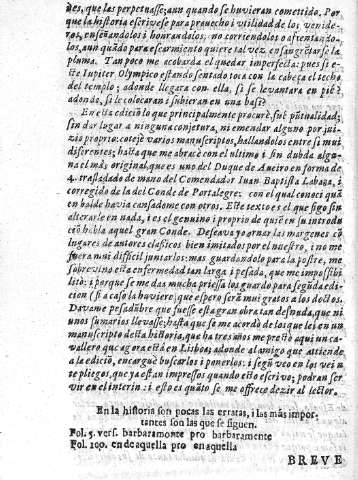 des, que las perpetuasse; aun quando se huvieran cometido. Por
que la historia escrivese para provecho i vtilidad de los venide-
ros, enseñandolos i honrandolos, no corriendolos o afrentando-
los, aun quãdo para escarmiento quiere tal vez ensangrẽtarse la
pluma. Tan poco me acobarda el quedar imperfecta: pues si e-
ste Iupiter Olympico estando sentado toca con la cabeça el techo
del templo; adonde llegara con ella, si se levantara en pie?
adondo, si le colocaran i subieran en vna basa?
En esta edicion lo que principalmente procurè, fue pũtualidad;
sin dar lugar a ninguna conjetura, ni emendar alguno por jui-
zio proprio: cotejè varios manuscriptos, hallandolos entre si mui
diferentes; hasta que me abracè con el vltimo i sin dubda algu-
na el mas original, que es vno del Duque de Aveiro en forma de
4. trasladado de mano del Comendador Iuan Baptista Labaña, i
corregido de la del Conde de Portalegre: con el qual conoci quã
en balde havia cansadome con otros. Este texto es el que sigo sin
alterarle en nada, i es el genuino i proprio de quiẽ en su introdu
ciõ habla aquel gran Conde. Deseava yo ornar las margenes cõ
lugares de autores clasicos bien imitados por el nuestro, i no me
fuera mui dificil juntarlos: mas guardandolo para la postre, me
sobrevino esta enfermedad tan larga i pesada, que me impossibi
litò; i porque se me das mucha priessa los guardo para segũda edi-
cion (si a caso la huviere) que espero serà mui gratos a los doctos.
Davame pesadũbre que fuesse esta gran obra tan desnuda, que ni
vnos sumarios llevasse; hasta que se me acordò de los que lei en vn
manuscripto desta historia, que ha tres años me prestò aqui vn ca-
vallero que agora està en Lisboa; adonde al amigo que atiende
a la edicion, encarguè buscarlos i ponerlos: i segũ veo en los vein
te pliegos, que ya estan impressos quando esto escrivo; podran ser
vir en el interin: i esto es quãto se me offrece dezir al lector.
En la historia son pocas las erratas, i las mas impor-
tantes son las que se siguen.
Fol. 5. vers. barbaramonte pro barbaramente
Fol. 100. en de aquella pro en aquella
BREVE